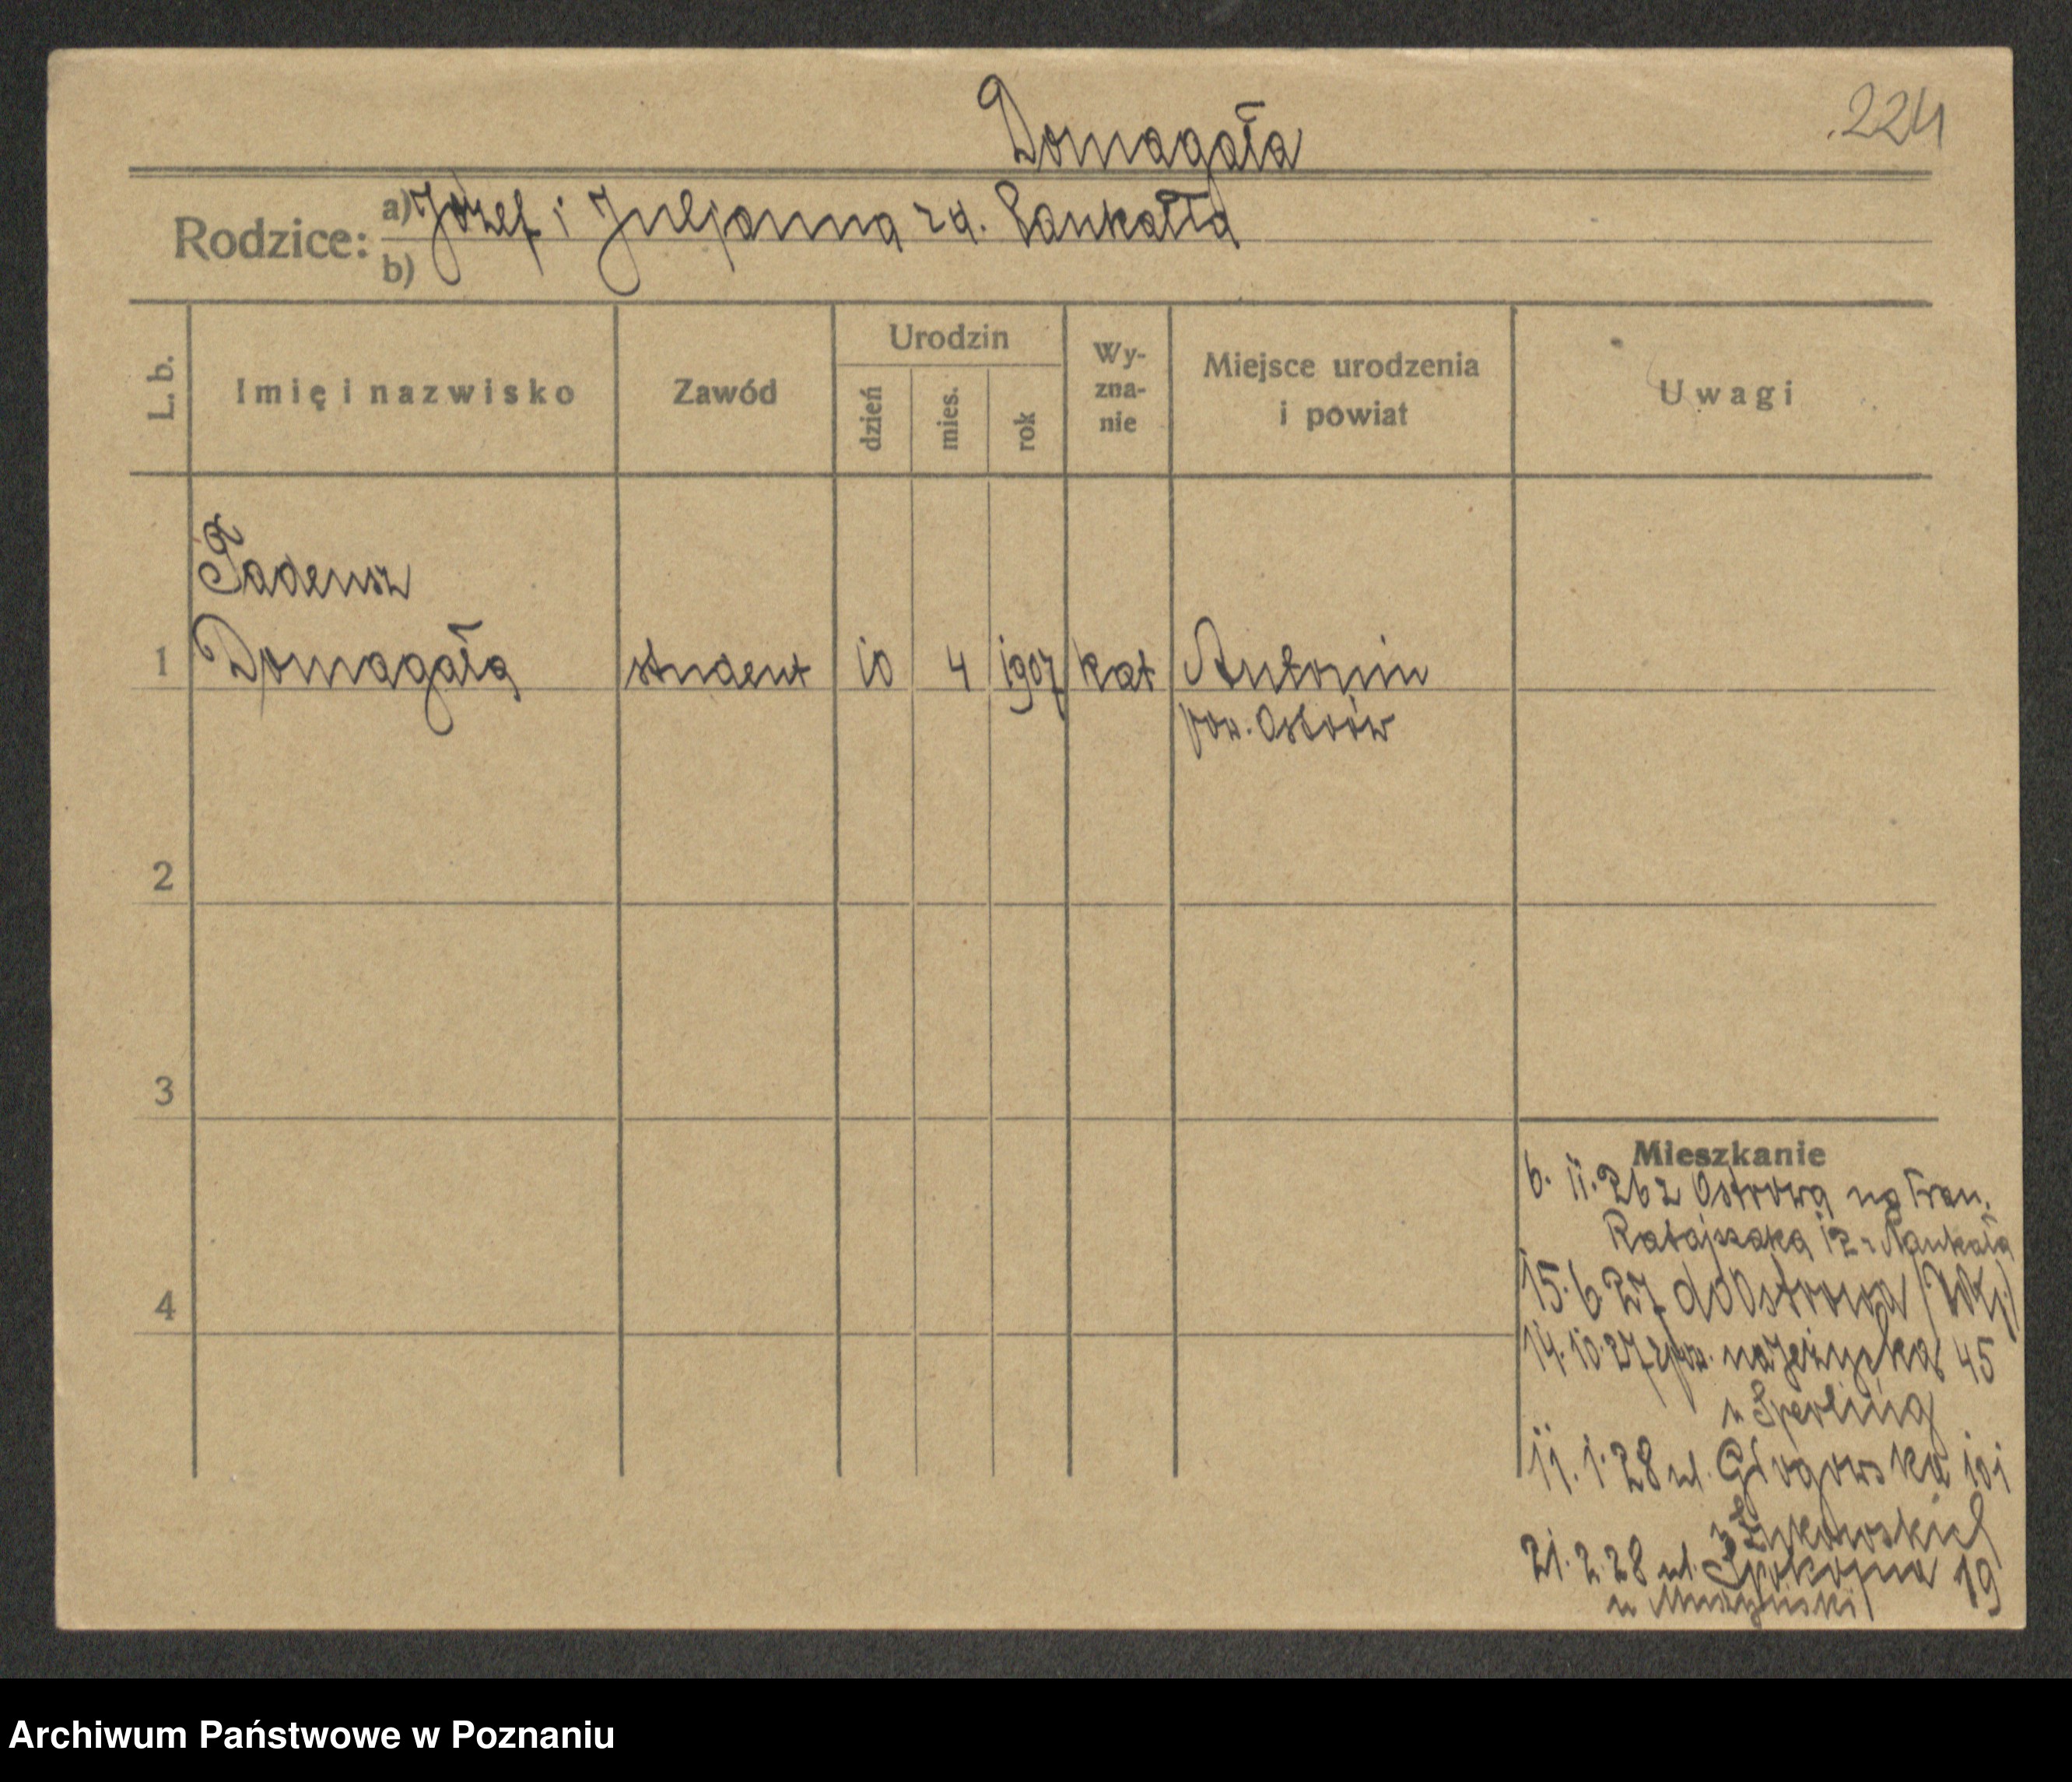 Domagała
224
Rodzice: a) Józef i Juljanna zd. Sankałła
b)
L. b.
Imię i nazwisko
Zawód
Urodzin
dzień
mies.
rok
Wy-
zna-
nie
Miejsce urodzenia
i powiat
Uwagi
Tadeusz
1 Domagała student 10 4 1907 kat Antonin
pow. Ostrów
2
3
4
Mieszkanie
6. 11. 26 z Ostrowa na Fran.
Ratajszaka 12
15. 6. 27 do Ostrowa
14. 10. 27 na Jeżycka 45
u Sperling
11. 1. 28 ul. Głogowska 101
21. 2. 28 ul. Spokojna 19
u
Archiwum Państwowe w Poznaniu